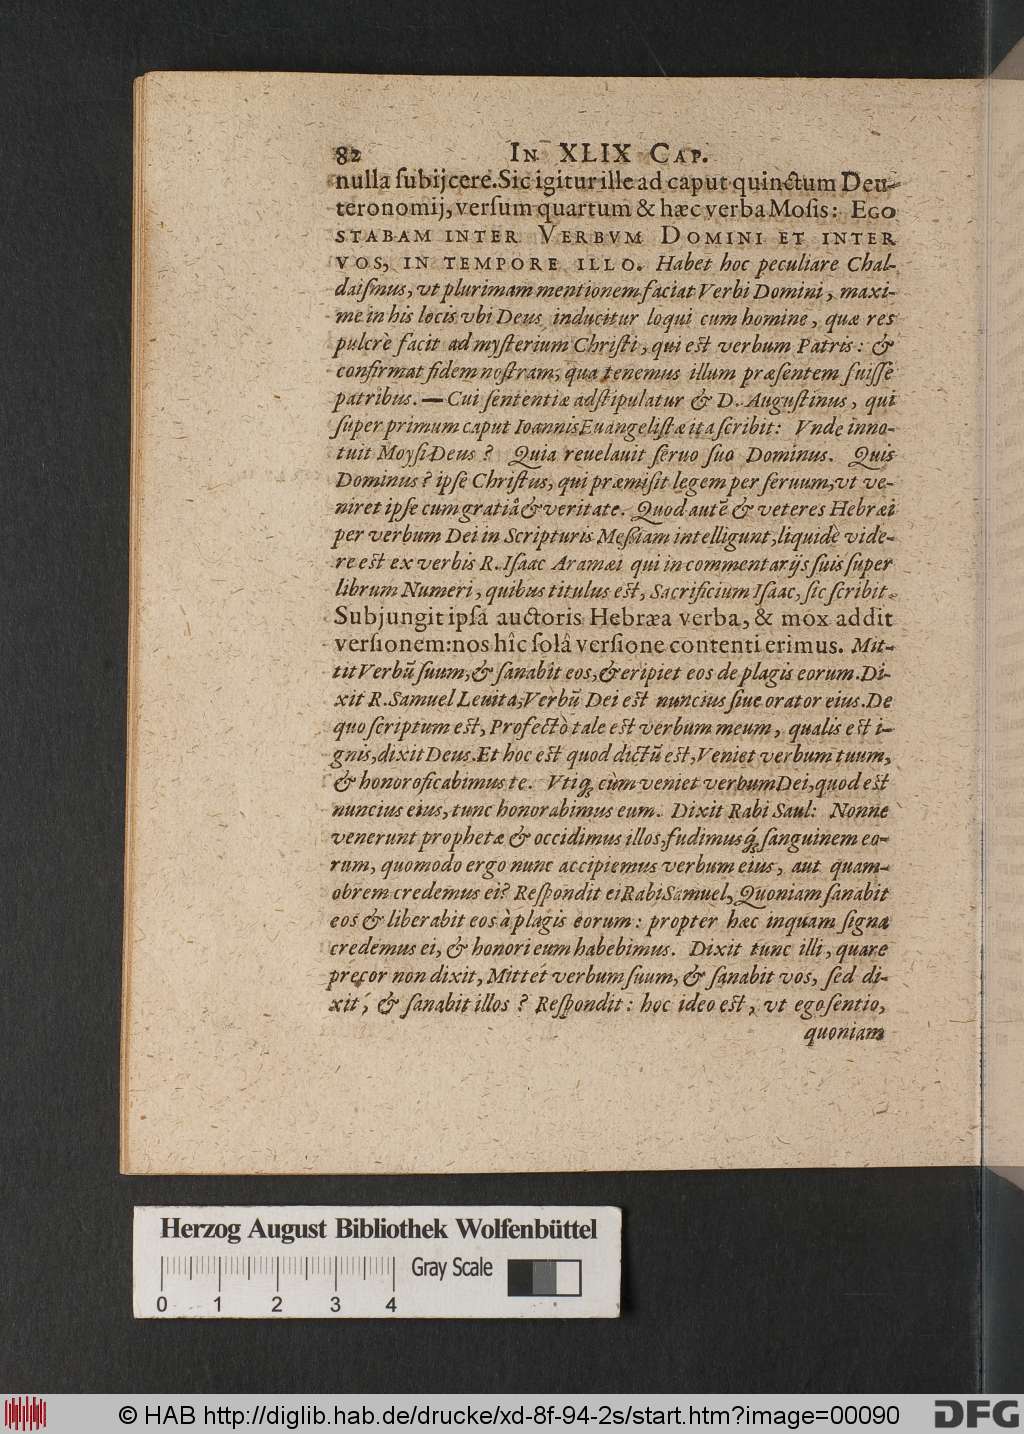 82 IN XLIX CAP.
nulla ſubijcere. Sic igitur ille ad caput quinctum Deu-
teronomij, verſum quartum & hæc verba Moſis: EGO
STABAM INTER VERBVM DOMINI ET INTER
VOS, IN TEMPORE ILLO. Habet hoc peculiare Chal-
daiſmus, vt plurimam mentionem faciat Verbi Domini, maxi-
me in his locis vbi Deus inducitur loqui cum homine, quæ res
pulcrè facit ad myſterium Chriſti, qui eſt verbum Patris: &
confirmat fidem noſtram, qua tenemus illum præſentem fuiſſe
patribus. — Cui ſententiæ adſtipulatur & D. Auguſtinus, qui
ſuper primum caput Ioannis Euangeliſtæ ita ſcribit: Vnde inno-
tuit Moyſi Deus? Quia reuelauit ſeruo ſuo Dominus. Quis
Dominus? ipſe Chriſtus, qui præmiſit legem per ſeruum, vt ve-
niret ipſe cum gratiâ & veritate. Quod autē & veteres Hebræi
per verbum Dei in Scripturis Meſsiam intelligunt, liquidè vide-
re eſt ex verbis R. Iſaac Aramæi qui in commentarijs ſuis ſuper
librum Numeri, quibus titulus eſt, Sacrificium Iſaac, ſic ſcribit.
Subjungit ipſa auctoris Hebræa verba, & mox addit
verſionem: nos hîc ſolâ verſione contenti erimus. Mit-
tit Verbū ſuum, & ſanabit eos, & eripiet eos de plagis eorum. Di-
xit R. Samuel Leuita, Verbū Dei eſt nuncius ſiue orator eius. De
quo ſcriptum eſt, Profectò tale eſt verbum meum, qualis eſt i-
gnis, dixit Deus. Et hoc eſt quod dictū eſt, Veniet verbum tuum,
& honoroficabimus te. Vtiq; cùm veniet verbum Dei, quod eſt
nuncius eius, tunc honorabimus eum. Dixit Rabi Saul: Nonne
venerunt prophetæ & occidimus illos, fudimusq́; ſanguinem eo-
rum, quomodo ergo nunc accipiemus verbum eius, aut quam-
obrem credemus ei? Reſpondit ei Rabi Samuel, Quoniam ſanabit
eos & liberabit eos à plagis eorum: propter hæc inquam ſigna
credemus ei, & honori eum habebimus. Dixit tunc illi, quare
precor non dixit, Mittet verbum ſuum, & ſanabit vos, ſed di-
xit, & ſanabit illos? Reſpondit: hoc ideo eſt, vt ego ſentio,
quoniam
Herzog August Bibliothek Wolfenbüttel
Gray Scale
0 1 2 3 4
© HAB http://diglib.hab.de/drucke/xd-8f-94-2s/start.htm?image=00090
DFG